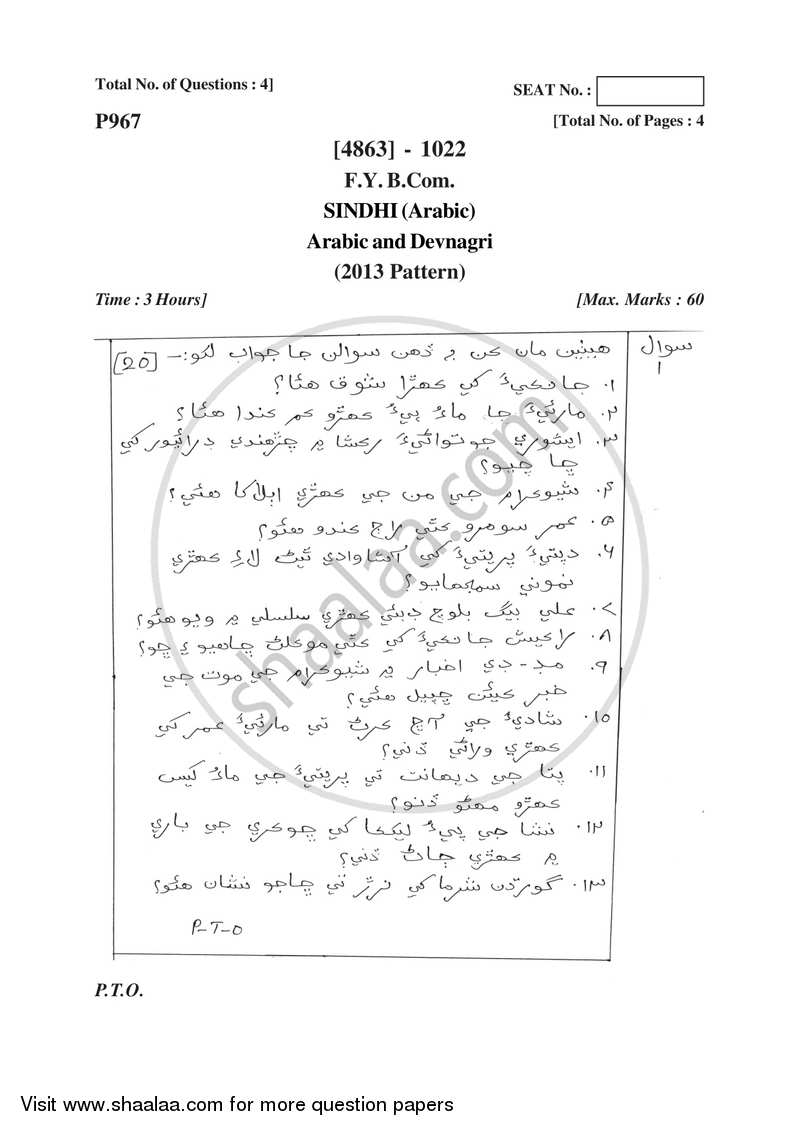 Total No. of Questions : 4]
SEAT No. :
P967
[Total No. of Pages : 4
[4863] - 1022
F.Y. B.Com.
SINDHI (Arabic)
Arabic and Devnagri
(2013 Pattern)
Time : 3 Hours]
[Max. Marks : 60
سوال ١
هيٺين مان ڪن بہ ڏهن سوالن جا جواب لکو :– [20]
١. جانڪيءُ کي ڪهڙا شوق هئا؟
٢. مارئيءَ جا ماءُ پيءُ ڪهڙو ڪم ڪندا هئا؟
٣. ايشوري جوتواڻيءَ رڪشا ۾ چڙهندي ڊرائيور کي
ڇا چيو؟
۴. شيوڪرام جي من جي ڪهڙي اڀلاکا هئي؟
۵. عمر سومرو ڪٿي راڄ ڪندو هئو؟
۶. ديپتيءَ پريتيءَ کي آشاوادي ٿيڻ لاءِ ڪهڙي
نموني سمجهايو؟
٧. علي بيگ بلوچ دبئي ڪهڙي سلسلي ۾ ويو هئو؟
٨. راڪيش جانڪيءَ کي ڪٿي موڪلڻ چاهيو ۽ ڇو؟
٩. اخبار ۾ شيوڪرام جي موت جي
خبر ڪيئن ڇپيل هئي؟
١٠. شاديءَ جي آڇ ڪرڻ تي مارئيءَ عمر کي
ڪهڙي ورندي ڏني؟
١١. پتا جي ديهانت تي پريتيءَ جي ماءُ کيس
ڪهڙو مهڻو ڏنو؟
١٢. نشا جي پيءُ ليکڪا کي ڇوڪري جي باري
۾ ڪهڙي ڄاڻ ڏني؟
١٣. گورڌن شرما کي نرڙ تي ڇاجو نشان هئو؟
P-T-O
P.T.O.
shaalaa.com
Visit www.shaalaa.com for more question papers